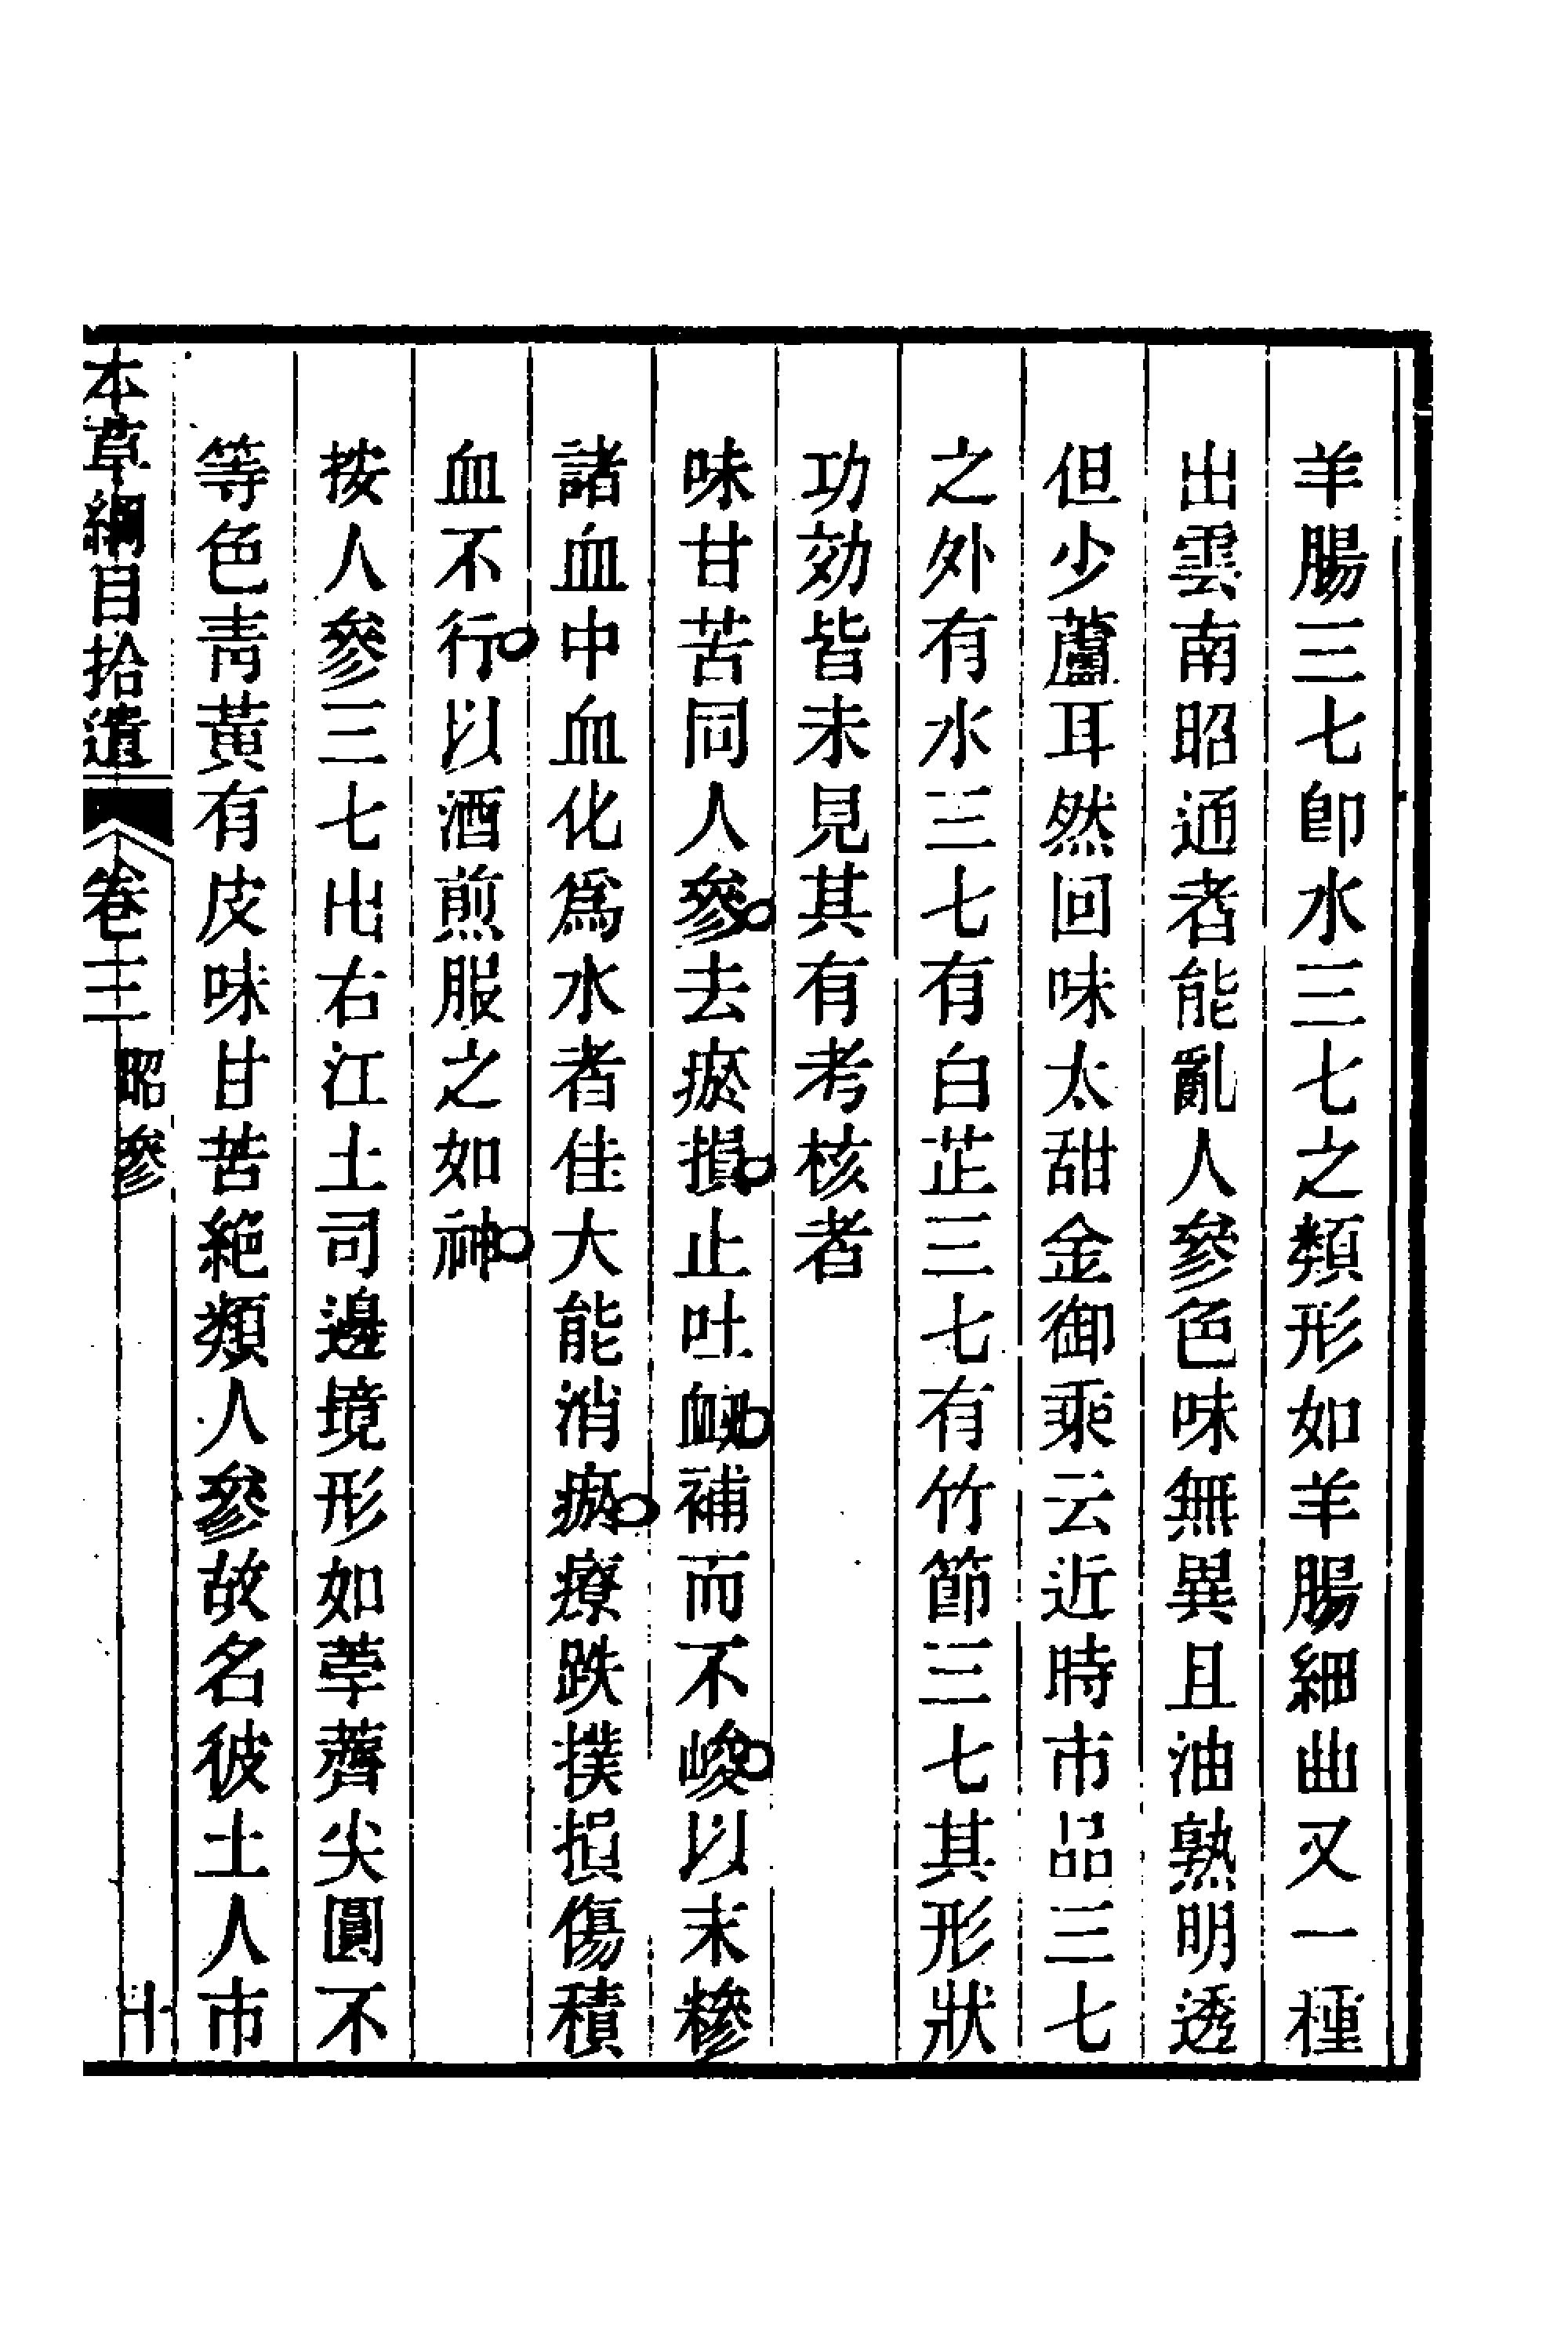 羊腸三七卽水三七之類形如羊腸細曲又一種
出雲南昭通者能亂人參色味無異且油熟明透
但少蘆耳然回味太甜金御乘云近時市品三七
之外有水三七有白芷三七有竹節三七其形狀
功効皆未見其有考核者
味甘苦同人參去瘀損止吐衂補而不峻以末糝
諸血中血化爲水者佳大能消瘀療跌撲損傷積
血不行以酒煎服之如神
按人參三七出右江土司邊境形如荸薺尖圓不
等色靑黃有皮味甘苦絕類人參故名彼土人市
本草綱目拾遺 卷三 昭參 十